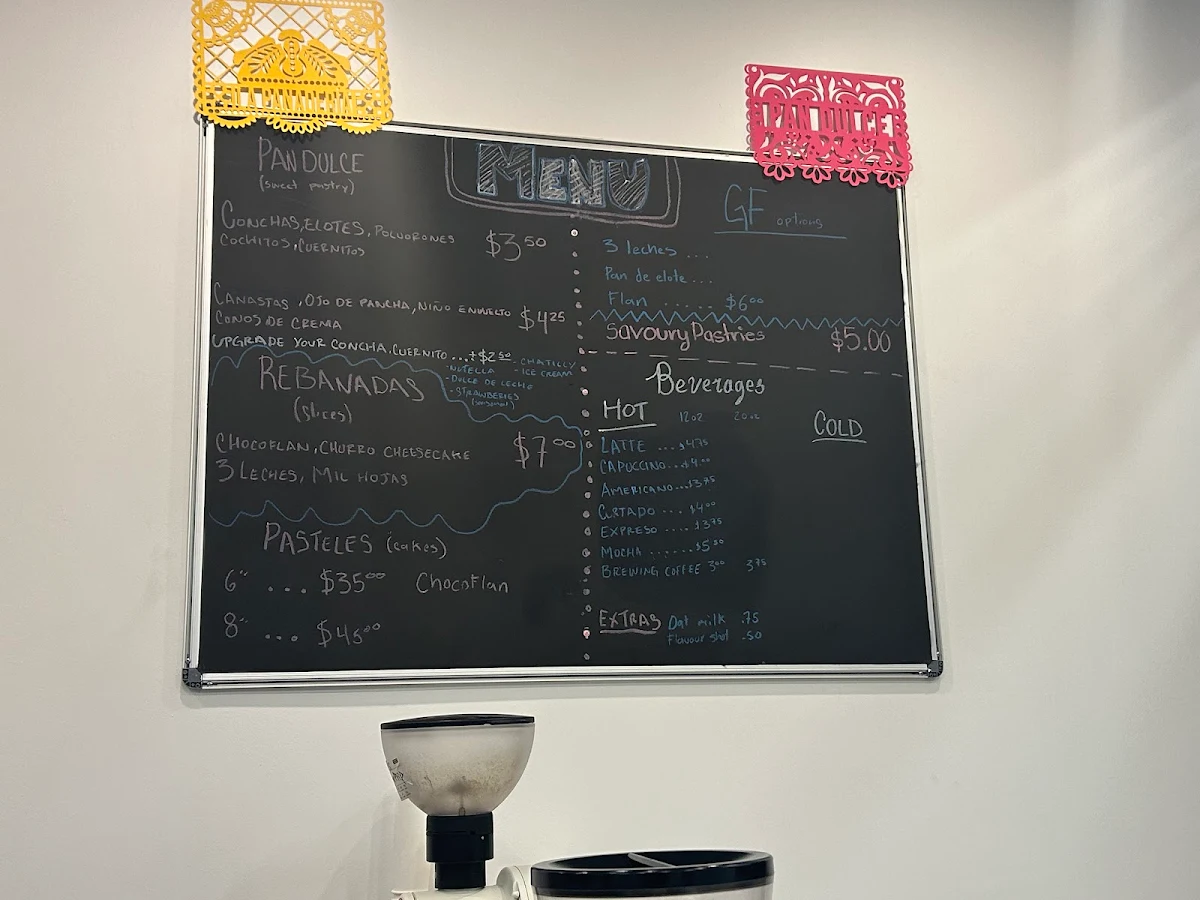 LA PANADERIA
PAN DULCE
MENU
PAN DULCE
(sweet pastry)
CONCHAS, ELOTES, POLVORONES
COCHITOS, CUERNITOS
$3.50
CANASTAS, OJO DE PANCHA, NIÑO ENVUELTO
CONOS DE CREMA
$4.25
UPGRADE YOUR CONCHA, CUERNITO ...+$2.50
- NUTELLA
- DULCE DE LECHE
- STRAWBERRIES
(seasonal)
- CHATILLY
- ICE CREAM
REBANADAS
(slices)
CHOCOFLAN, CHURRO CHEESECAKE
3 LECHES, MIL HOJAS
$7.00
PASTELES (cakes)
6" ... $35.00 Chocoflan
8" ... $45.00
GF options
3 leches ...
Pan de elote ...
Flan ...... $6.00
Savoury Pastries $5.00
Beverages
HOT 12oz 20oz
LATTE .... $4.75
CAPUCCINO...$4.00
AMERICANO...$3.75
CORTADO .... $4.00
EXPRESO .... $3.75
MOCHA ....... $5.50
BREWING COFFEE 3.00 3.75
COLD
EXTRAS Oat milk .75
Flavour shot .50